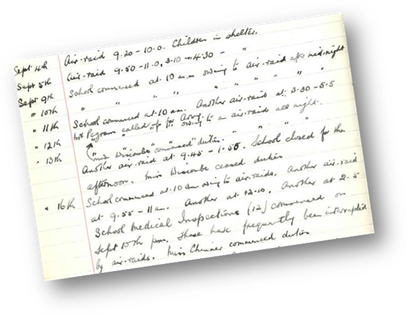 Sept 4th Air-raid 9.20-10.0. Children in shelter.
Sept 5th Air-raid 9.50-11.0, 3.10-4.30 - "
Sept 9th School commenced at 10 a.m owing to air-raid after mid-night
" 10th " " " " " " " "
" 11th School commenced at 10 am. Another air-raid at 3.30-5.5
Mr Pegram called up for Army.
" 12th owing to air raids all night.
" 13th Miss Duscombe commenced duties. " " "
Another air raid at 9.45-1.55. School closed for the
afternoon. Miss Duscombe ceased duties
" 16th School commenced at 10 am owing to air-raids. Another air-raid
at 9.55-11am. Another at 12.10. Another at 2.5
School Medical Inspections (12) commenced on
Sept 10th pm, these have frequently been interrupted
by air-raids. Miss commenced duties